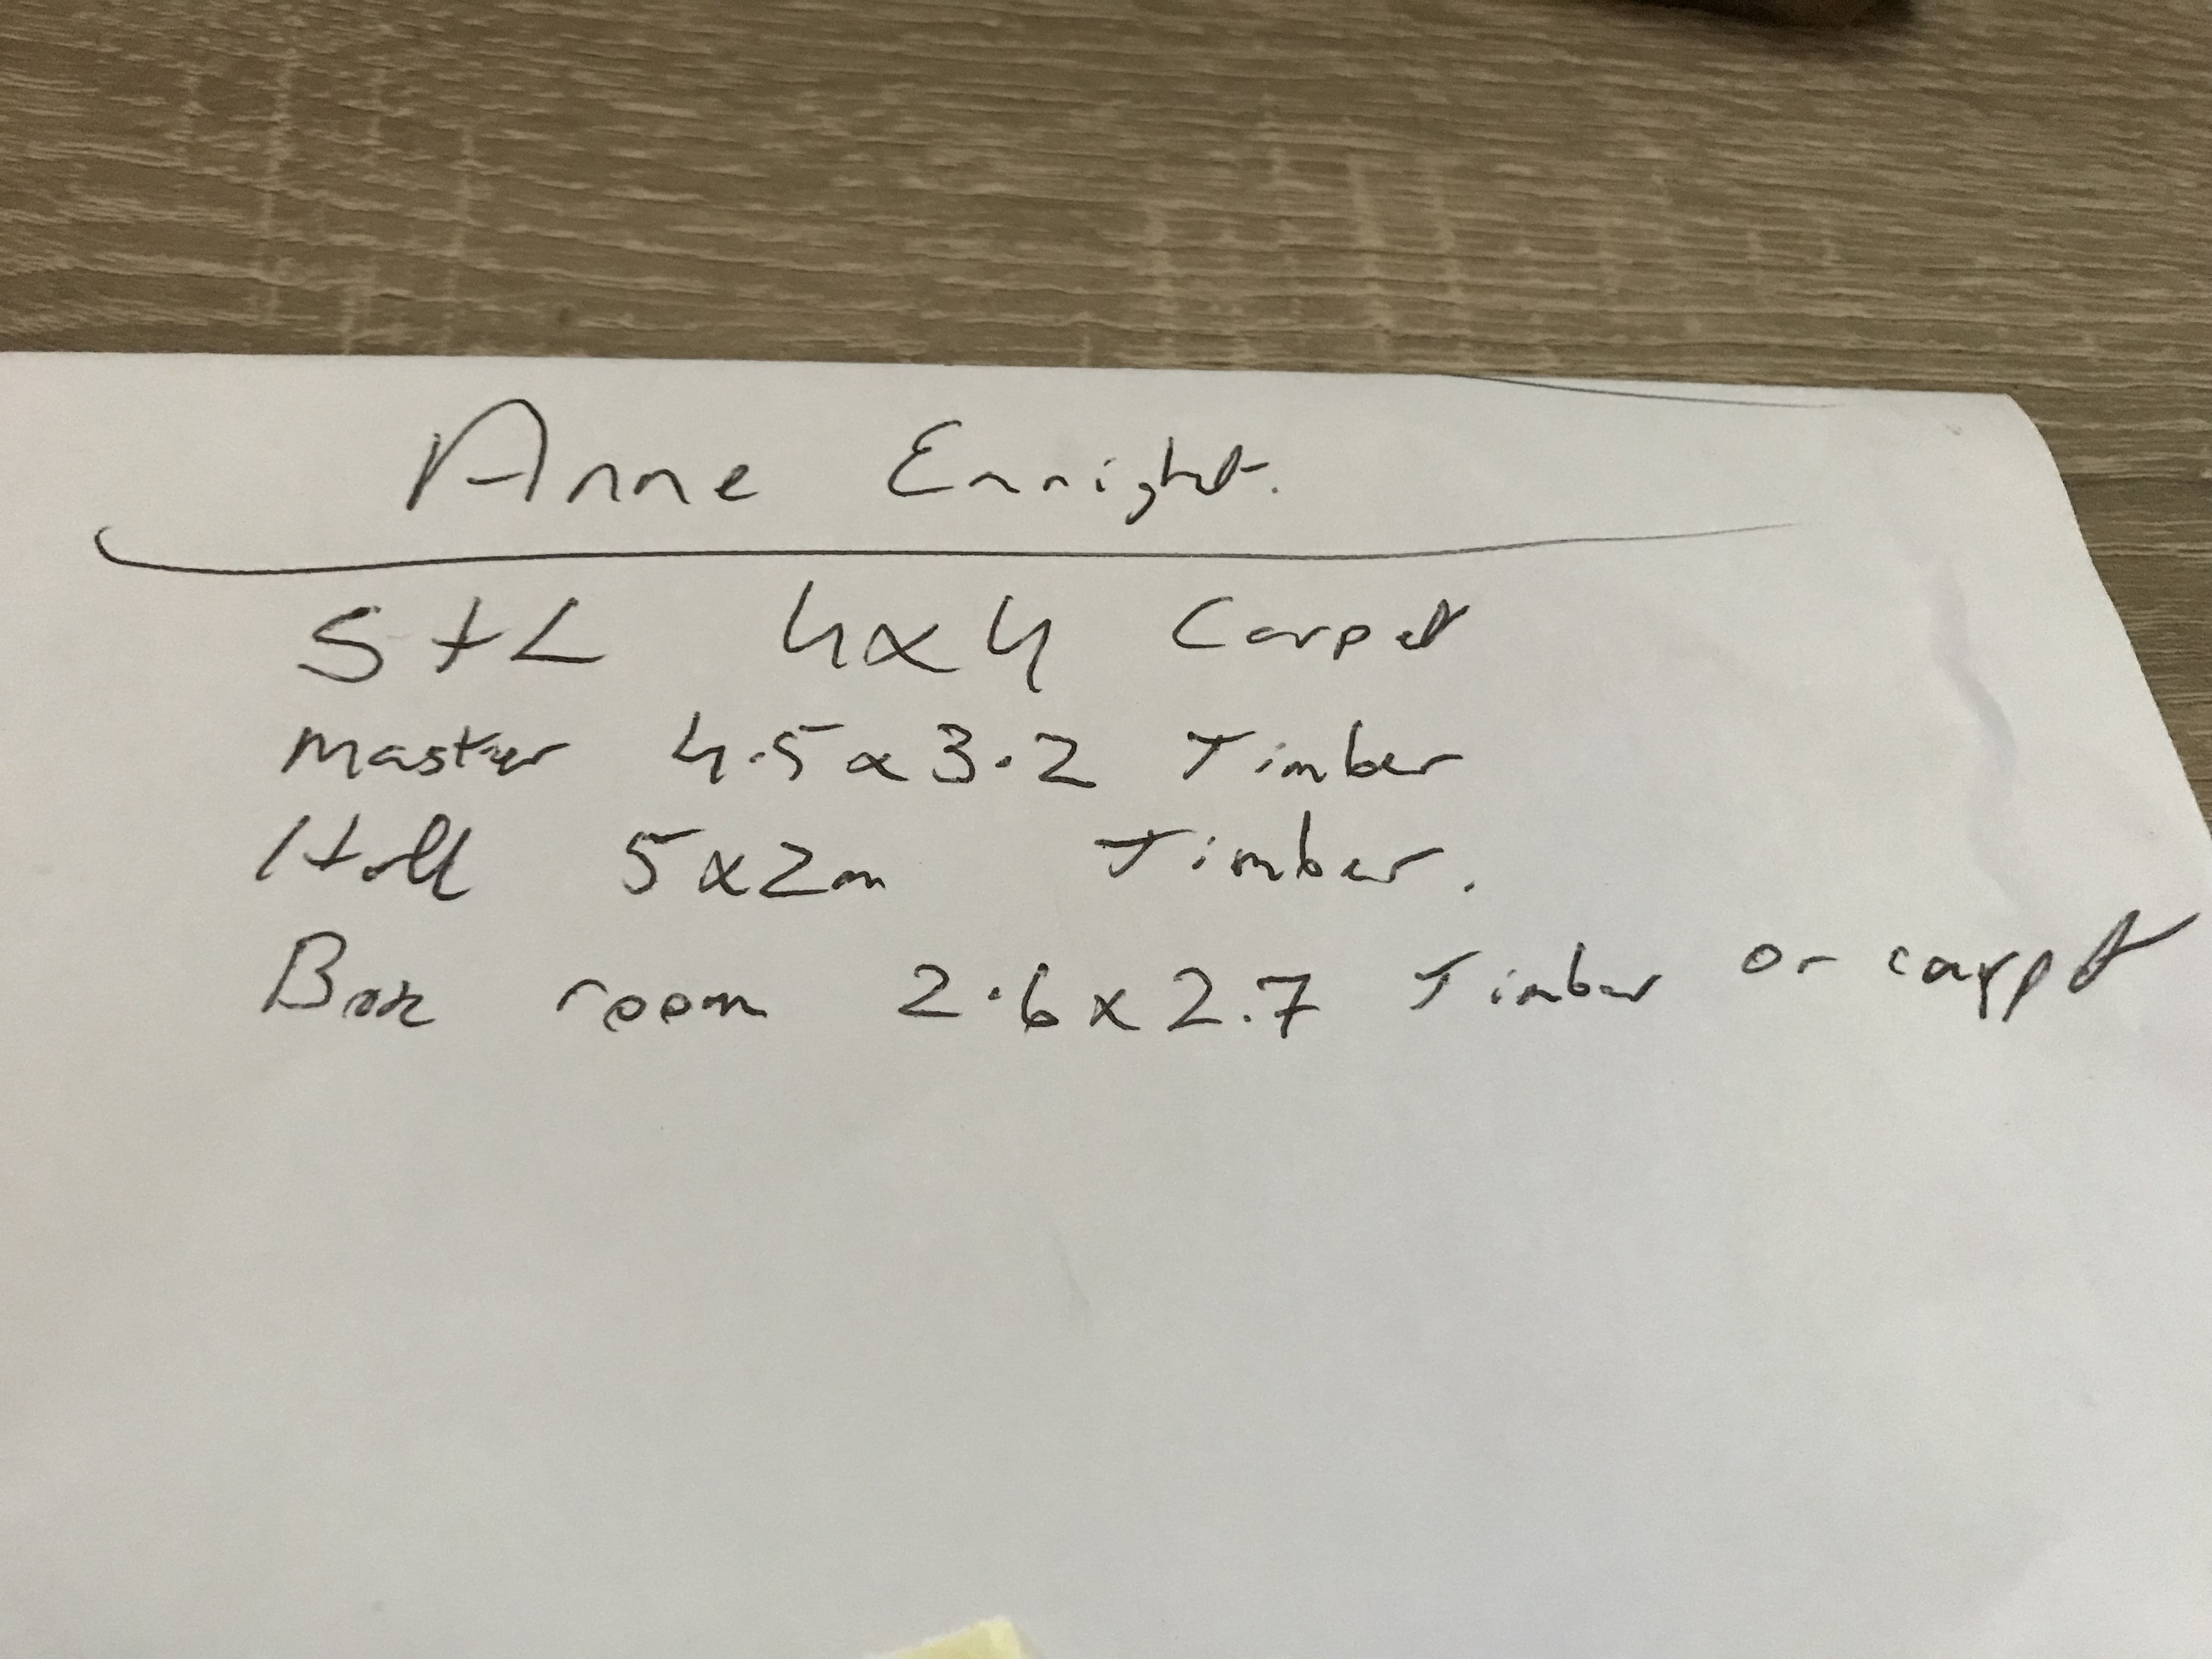 Anne Enright.
S + L 4x4 Carpet
Master 4.5 x 3.2 Timber
Hall 5x2m Timber.
Box room 2.6 x 2.7 Timber or carpet